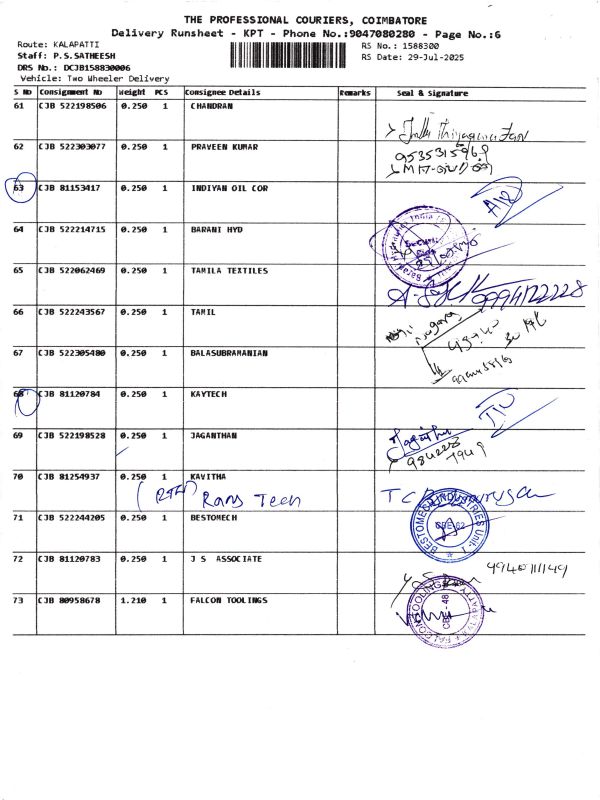 THE PROFESSIONAL COURIERS, COIMBATORE
Delivery Runsheet - KPT - Phone No.:9047080280 - Page No.:6
Route: KALAPATTI
RS No.: 1588300
Staff: P.S.SATHEESH
RS Date: 29-Jul-2025
DRS No.: DCJB158830006
Vehicle: Two Wheeler Delivery
S No Consignment No Weight PCS Consignee Details Remarks Seal & Signature
61 CJB 522198506 0.250 1 CHANDRAN
62 CJB 522303077 0.250 1 PRAVEEN KUMAR
9535315969
63 CJB 81153417 0.250 1 INDIYAN OIL COR
64 CJB 522214715 0.250 1 BARANI HYD
65 CJB 522062469 0.250 1 TAMILA TEXTILES
9994122228
66 CJB 522243567 0.250 1 TAMIL
67 CJB 522305480 0.250 1 BALASUBRAMANIAN
68 CJB 81120784 0.250 1 KAYTECH
69 CJB 522198528 0.250 1 JAGANTHAN
Jaganthan
70 CJB 81254937 0.250 1 KAVITHA
Rams Teen
71 CJB 522244205 0.250 1 BESTOMECH
BESTOMECH INDUSTRIES Unit-I
CBE-62
72 CJB 81120783 0.250 1 J S ASSOCIATE
73 CJB 80958678 1.210 1 FALCON TOOLINGS
CBE - 48